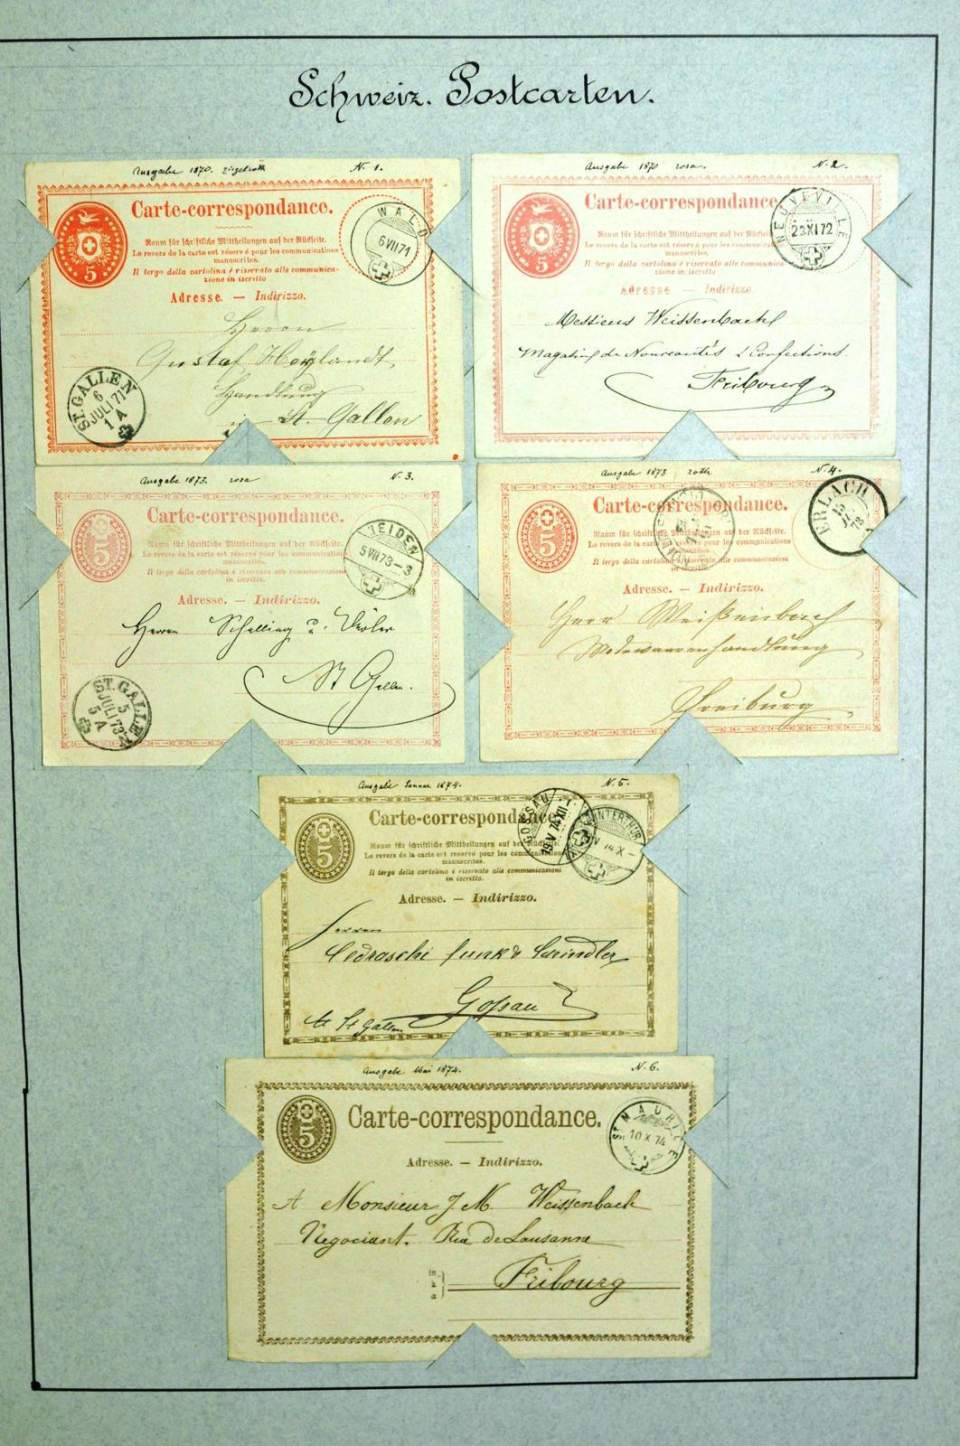 Schweiz. Postcarten.
Ausgabe 1870. N. 1.
Carte-correspondance.
WALD
6 VII 71
5
Raum für schriftliche Mittheilungen auf der Rückseite.
Le revers de la carte est réservé pour les communications
manuscrites.
Il tergo della cartolina é riservato alle communica-
zione in iscritto
Adresse. — Indirizzo.
Herrn
Gustaf
Handlung
St. Gallen
ST. GALLEN
6
JULI 71
1 A
Ausgabe 1870 rosa. N. 2.
Carte-correspondance.
NEUVEVILLE
23 XI 72
5
Raum für schriftliche Mittheilungen auf der Rückseite.
Le revers de la carte est réservé pour les communications
manuscrites.
Il tergo della cartolina é riservato alle communica-
zione in iscritto
Adresse — Indirizzo.
Messieurs Weissenbach
Magasin de Nouveautés & Confections.
Fribourg
Ausgabe 1873. rosa N. 3.
Carte-correspondance.
HEIDEN
5 VII 73 – 3
5
Raum für schriftliche Mittheilungen auf der Rückseite.
Le revers de la carte est réservé pour les communications
manuscrites.
Il tergo della cartolina é riservato alle communicazioni
in iscritto.
Adresse. — Indirizzo.
Herren Schelling &
St Gallen.
ST. GALLEN
5
JULI 73
5 A
Ausgabe 1873 roth N. 4.
Carte-correspondance.
ERLACH
5
Raum für schriftliche Mittheilungen auf der Rückseite.
Le revers de la carte est réservé pour les communications
manuscrites.
Il tergo della cartolina é riservato alle communicazioni
in iscritto.
Adresse. — Indirizzo.
Herr Weißenbach
Modewaarenhandlung
Freiburg
Ausgabe Januar 1874. N. 5.
Carte-correspondance.
GOSSAU
19 V 74 XII
WINTERTHUR
V 74 X –
5
Raum für schriftliche Mittheilungen auf der Rückseite.
Le revers de la carte est réservé pour les communications
manuscrites.
Il tergo della cartolina é riservato alle communicazioni
in iscritto.
Adresse. — Indirizzo.
Herren
Funk &
Gossau
St Gallen
Ausgabe Mai 1874. N. 6.
Carte-correspondance.
ST MAURICE
10 X 74
5
Adresse. — Indirizzo.
A Monsieur J M. Weissenbach
Negociant. Rue de Lausanne
Fribourg